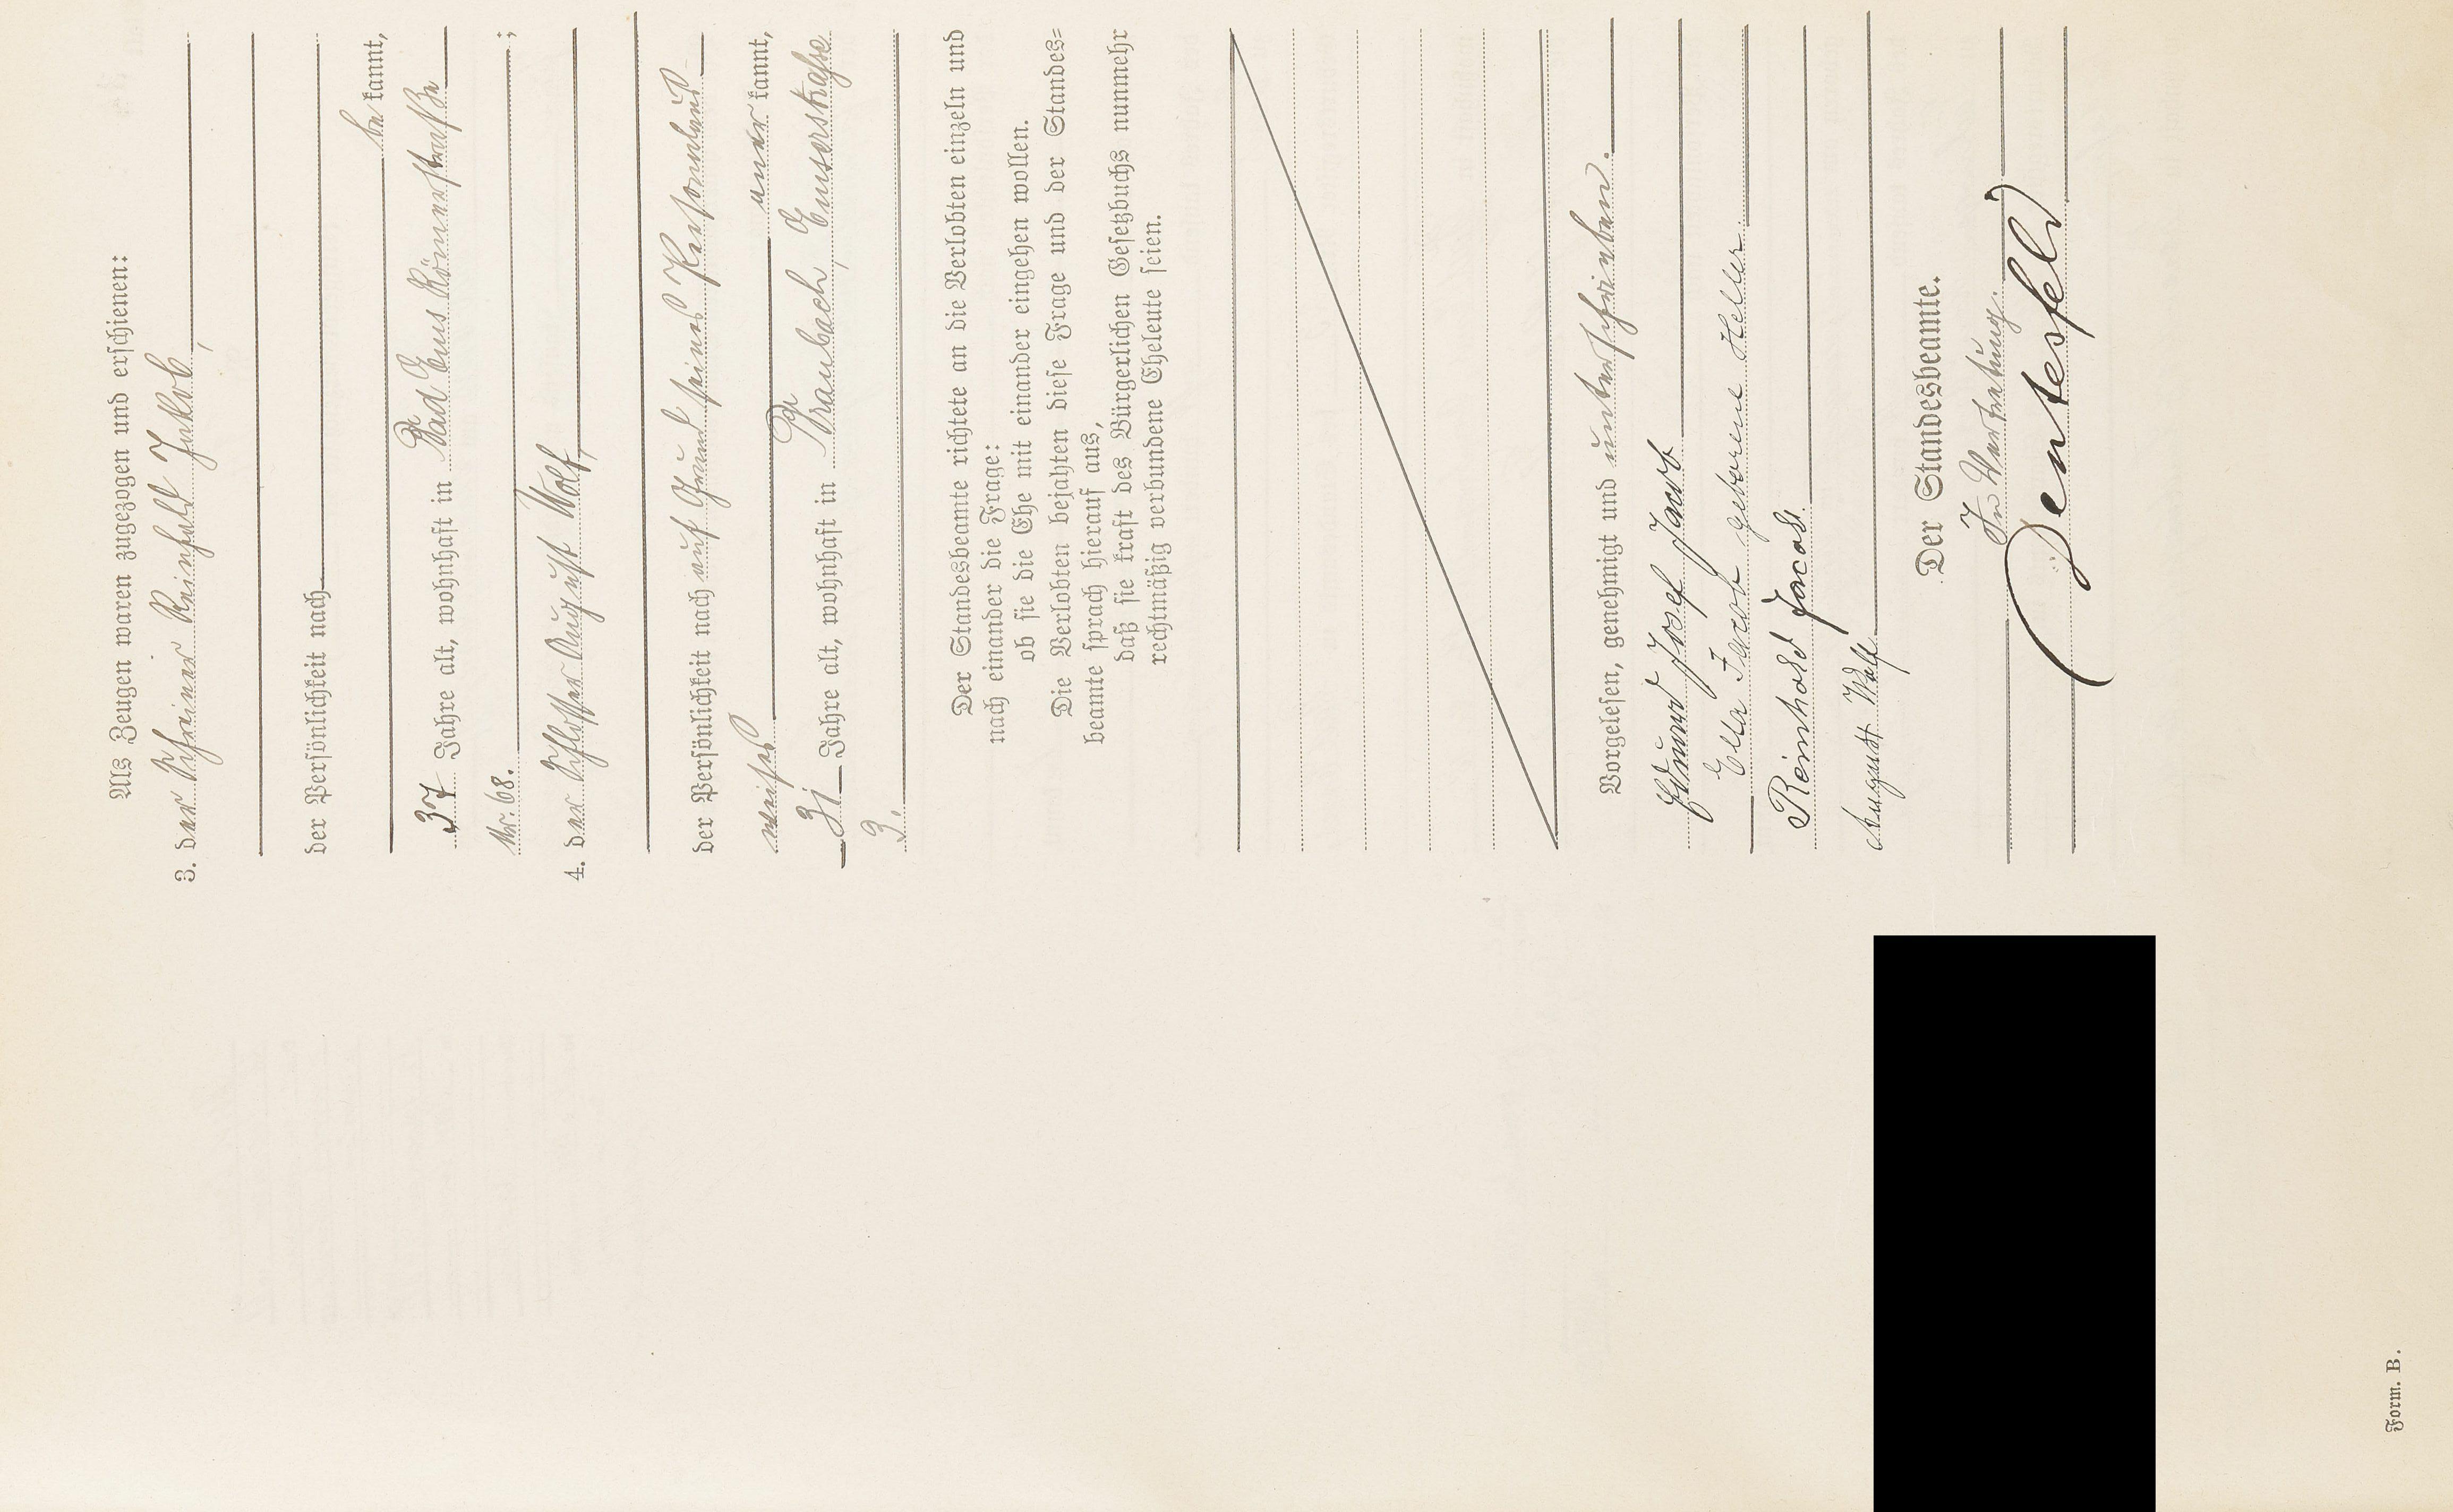 Als Zeugen waren zugezogen und erschienen:
3. der Schreiner Reinhold Jakob,
der Persönlichkeit nach
be kannt,
37 Jahre alt, wohnhaft in Bad Ems Römerstraße
Nr. 68. ;
4. der Schlosser August Wolf,
der Persönlichkeit nach auf Grund seines Personalaus-
weises aner kannt,
31 Jahre alt, wohnhaft in Braubach, Emserstraße
3.
Der Standesbeamte richtete an die Verlobten einzeln und
nach einander die Frage:
ob sie die Ehe mit einander eingehen wollen.
Die Verlobten bejahten diese Frage und der Standes=
beamte sprach hierauf aus,
daß sie kraft des Bürgerlichen Gesetzbuchs nunmehr
rechtmäßig verbundene Eheleute seien.
Vorgelesen, genehmigt und unterschrieben.
Edmund Josef Jacob
Ella Jacob geborene Heller.
Reinhold Jacob.
August Wolf
Der Standesbeamte.
In Vertretung.
Dentesfeld
Form. B.